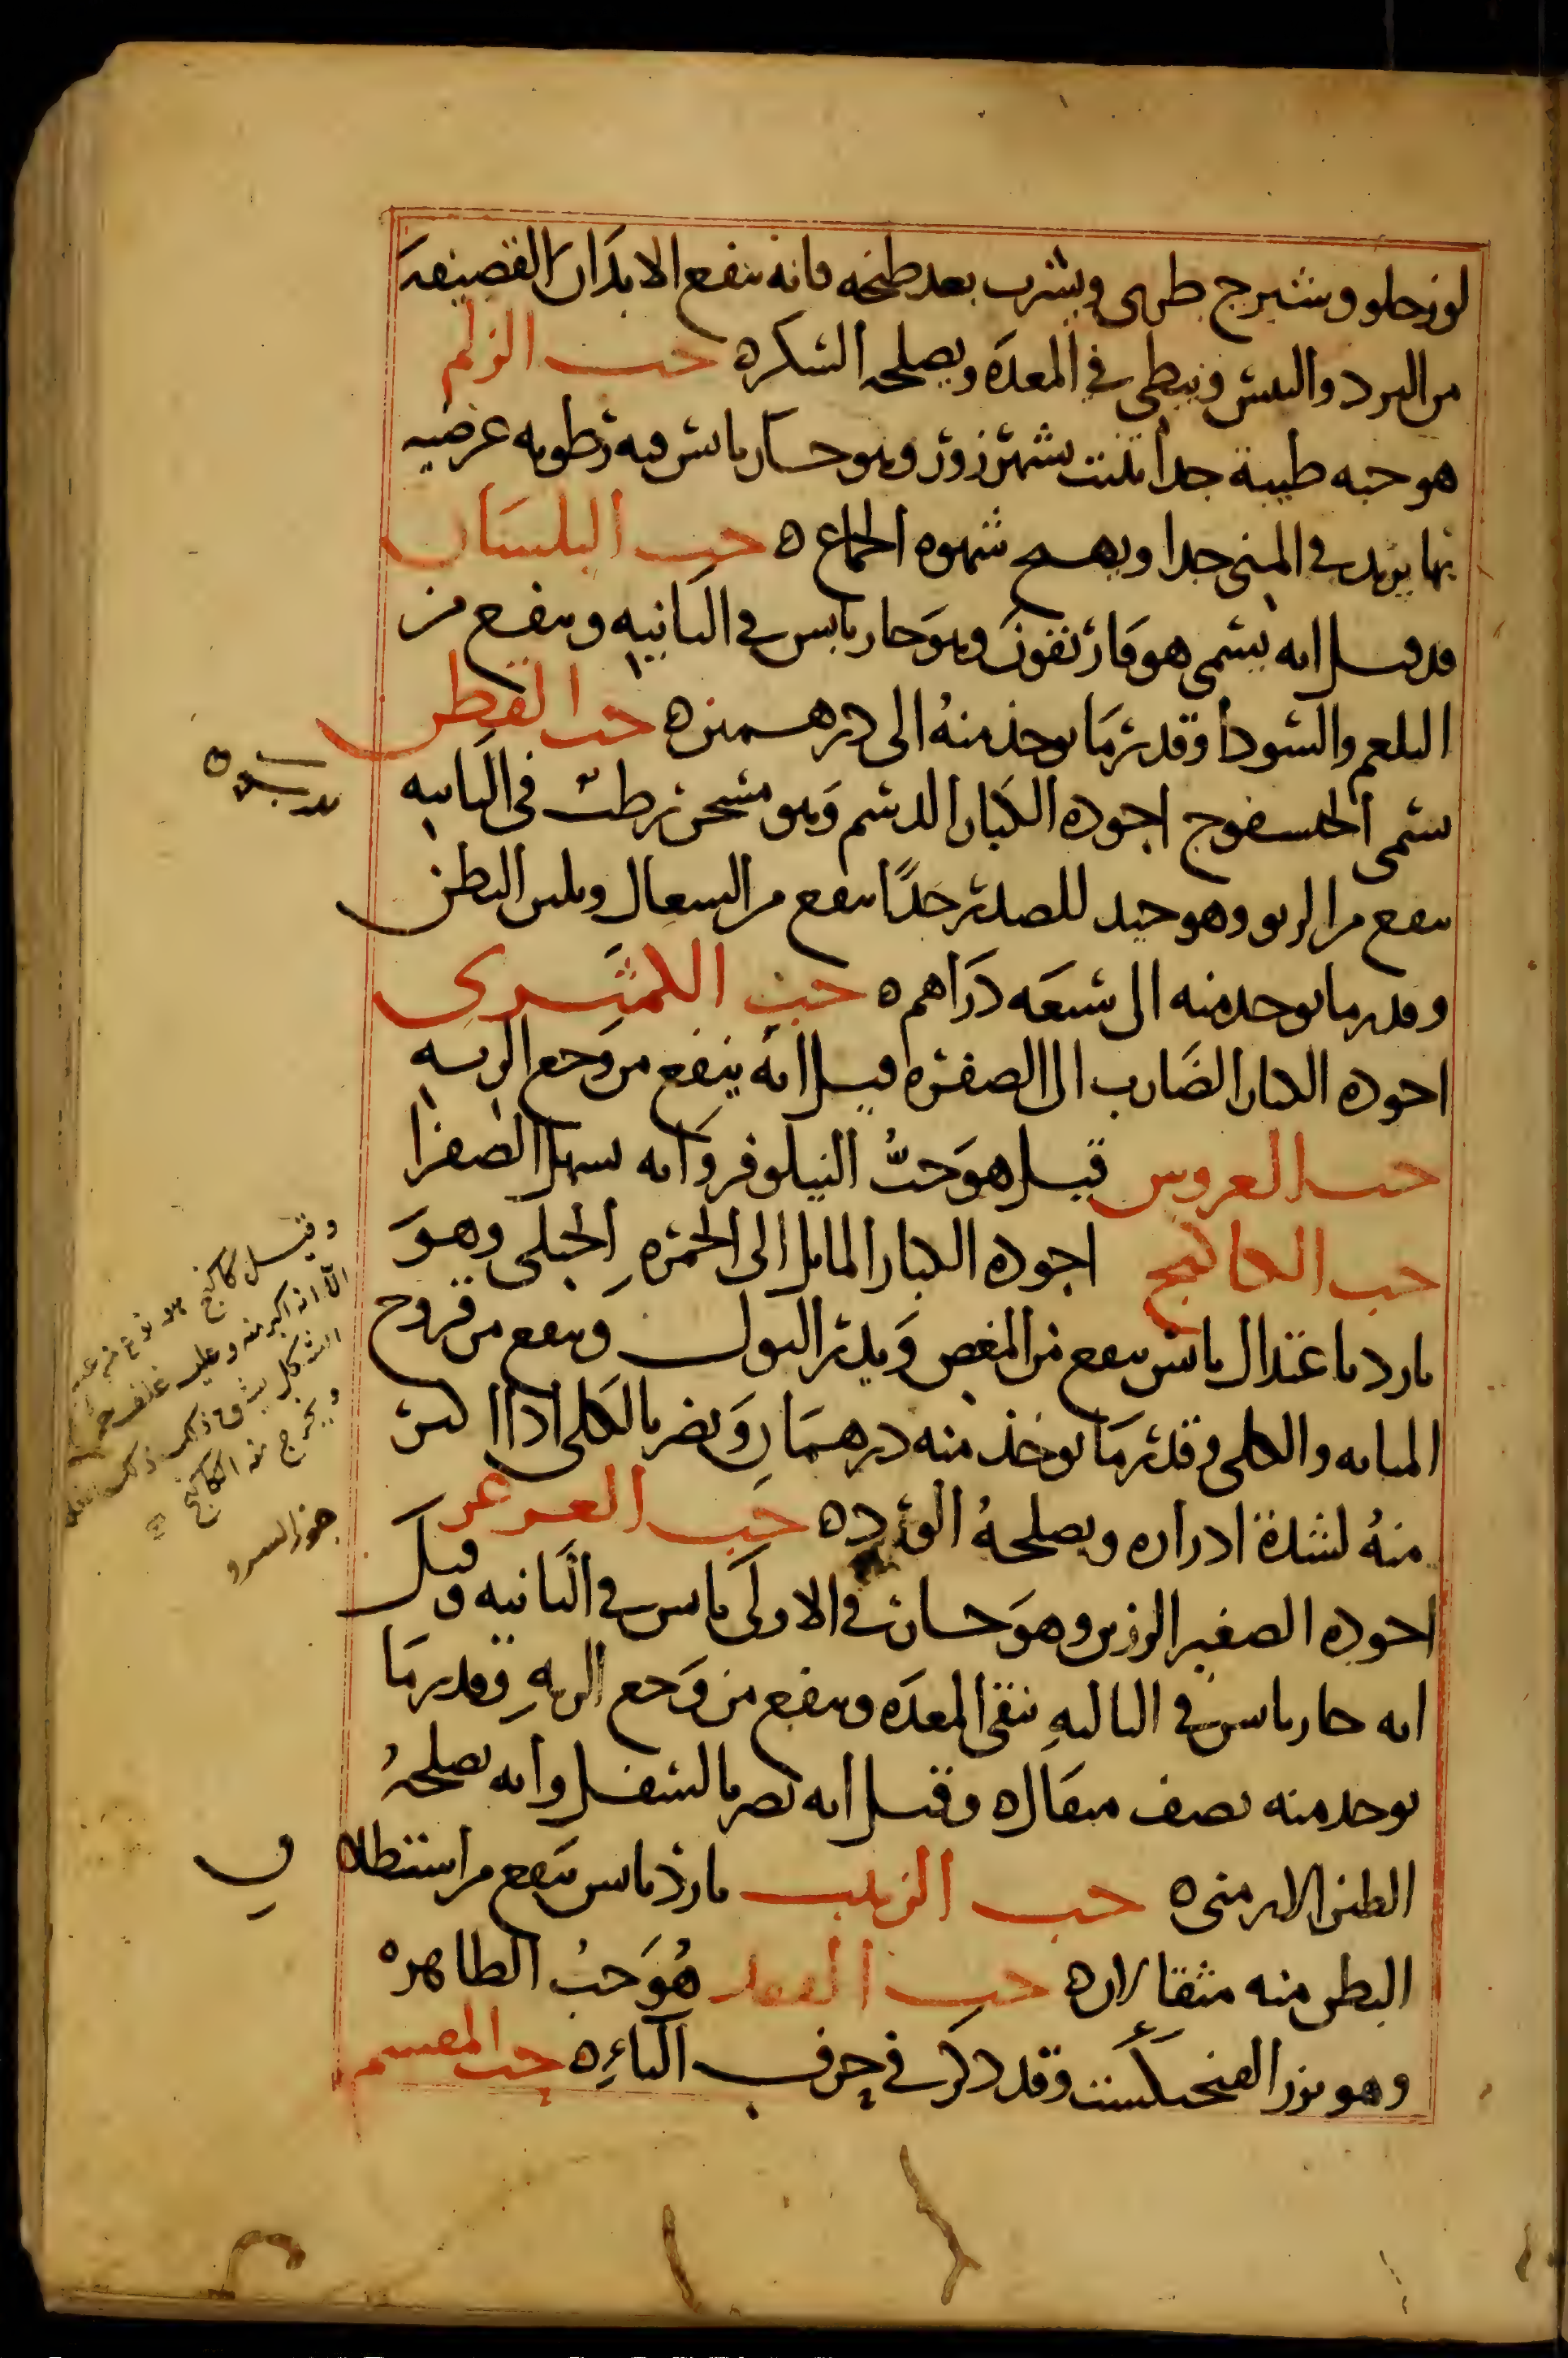 لوز حلو وشيرج طرى ويشرب بعد طبخه فانه ينفع الابدان القضيفه
من البرد واليبس ويبطى فى المعده ويصلحه السكر ه حب الزلم
هو حبه طيبة جدا تنبت بشهرزور وهو حار يابس فيه رطوبه عرضيه
بها يزيد فى المنى جدا ويهيج شهوه الجماع ه حب البلسان
قد قيل انه يسمى هو فاريقون وهو حار يابس فى الثانيه وينفع من
البلغم والسودا وقدر ما يوخذ منه الى درهمين ه حب القطن
يسمى الخيسفوج اجوده الكبار الدسم وهو مسخن رطب فى الثانيه
ينفع من الربو وهو جيد للصدر جدًا ينفع من السعال ويلين البطن
وقدر ما يوخذ منه الى سبعه دراهم ه حب الكمثرى
اجوده الكبار الضارب الى الصفره قيل انه ينفع من وجع الريه
حب العروس قيل هو حبُّ النيلوفر وانه يسهل الصفرا
حب الكاكنج اجوده الكبار المايل الى الحمره الجبلى وهو
بارد باعتدال يابس ينفع من المغص ويدر البول وينفع من قروح
المثانه والكلى وقدر ما يوخذ منه درهمان ويضر بالكلى اذا اكثر
منهُ لشدة ادراره ويصلحهُ الورد ه حب العرعر
اجوده الصغير الرزين وهو حار فى الاولى يابس فى الثانيه وقيل
انه حار يابس فى الثالثه ينقى المعده وينفع من وجع الريه وقدر ما
يوخذ منه نصف مثقال ه وقيل انه يضر بالسفل وانه يصلحهُ
الطين الارمنى ه حب الزبيب بارد يابس ينفع من استطلاق
البطن منه مثقالان ه حب الفقد هُوَ حبُ الطاهره
وهو بزر الفنجنكشت وقد ذكر فى حرف الباء ه حب المقسم
وقيل كاكنج هو نوع من عنب
الا انه اكبر منه وعليه غلف حمر
ويخرج منه الكاكنج
جوز السرو